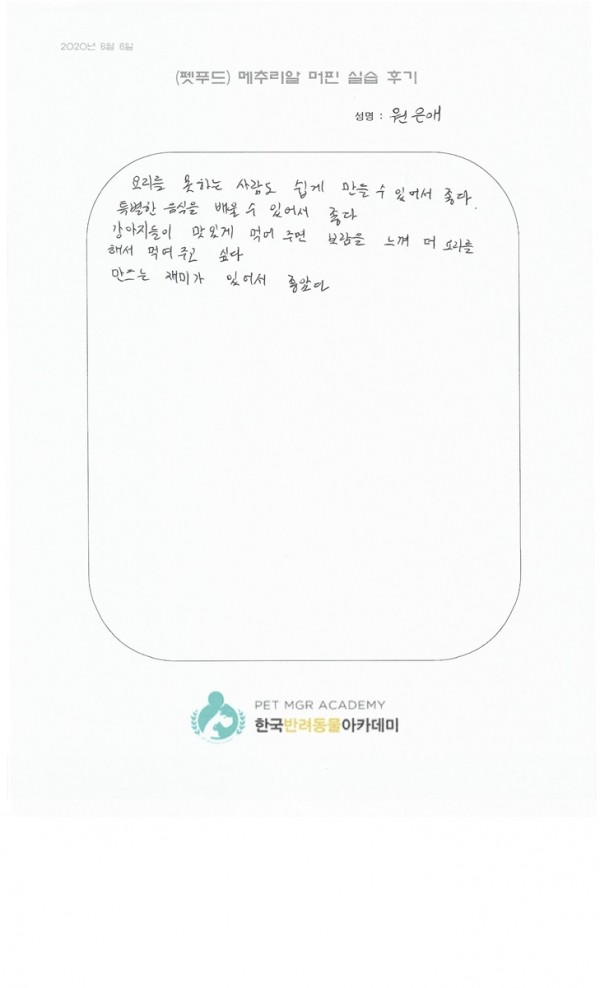 2020년 6월 6일
(펫푸드) 메추리알 머핀 실습 후기
성명 : 원은애
요리를 못하는 사람도 쉽게 만들 수 있어서 좋다.
특별한 음식을 배울 수 있어서 좋다
강아지들이 맛있게 먹어 주면 보람을 느껴 더 요리를
해서 먹여 주고 싶다
만드는 재미가 있어서 좋았다
PET MGR ACADEMY
한국반려동물아카데미